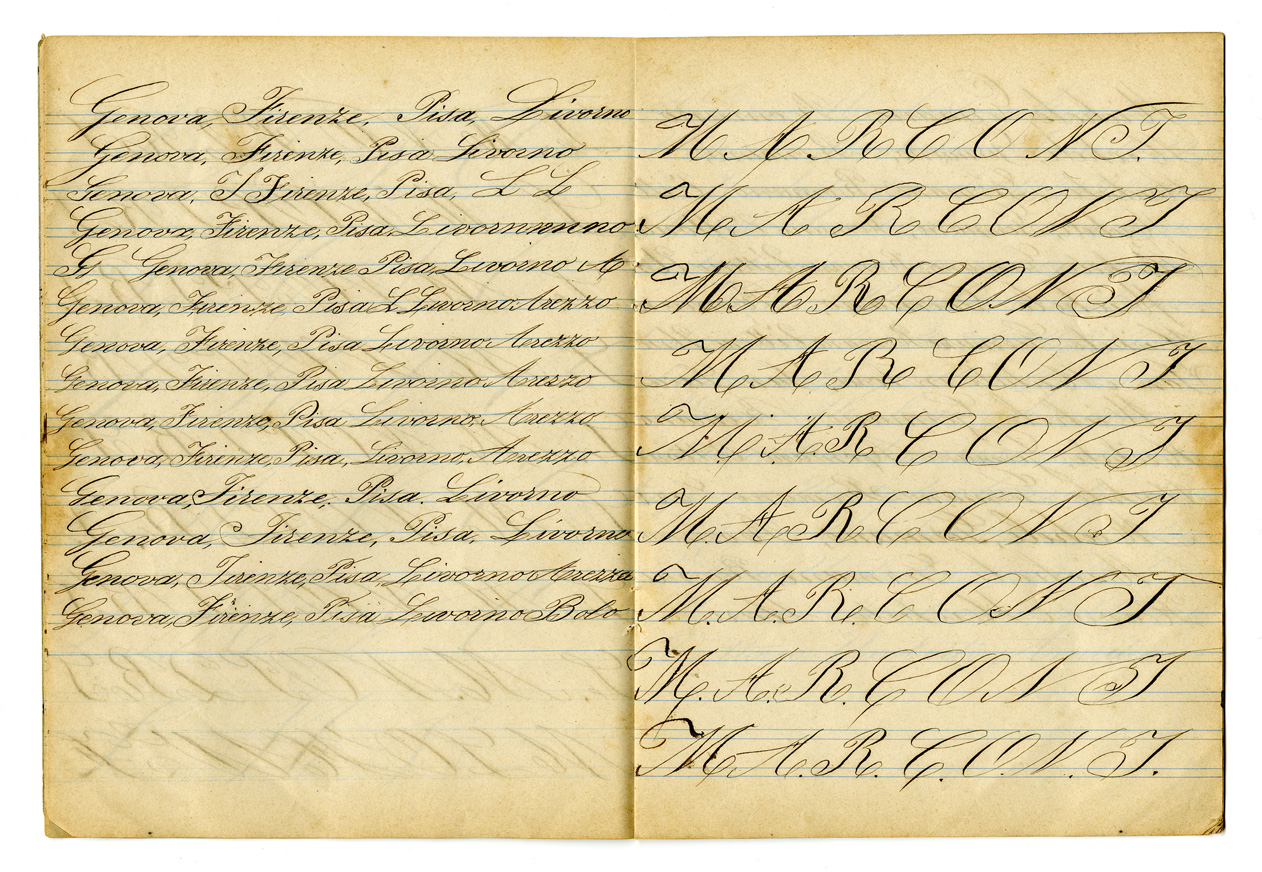 Genova, Firenze, Pisa, Livorno
Genova, Firenze, Pisa Livorno
Genova, F Firenze, Pisa, L L
Genova, Firenze, Pisa Livornnnnno
G Genova, Firenze Pisa, Livorno A
Genova, Firenze, Pisa L Livorno Arezzo
Genova, Firenze, Pisa Livorno Arezzo
Genova, Firenze, Pisa Livorno Arezzo
Genova, Firenze, Pisa Livorno, Arezzo
Genova, Firenze, Pisa, Livorno, Arezzo
Genova, Firenze, Pisa. Livorno
Genova, Firenze, Pisa, Livorno
Genova, Firenze, Pisa, Livorno Arezzo
Genova, Firenze, Pisa Livorno Bolo
M A R C O N I.
M A R C O N I
M A R C O N I
M A R C O N I
M. A. R. C O N I
M. A R C O N I
M. A. R. C O N I
M. A. R. C O N I
M A. R. C. O. N. I.